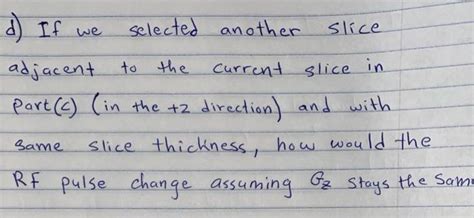 d) If we selected another slice
adjacent to the current slice in
part(c) (in the +z direction) and with
same slice thickness, how would the
RF pulse change assuming Gz stays the Same